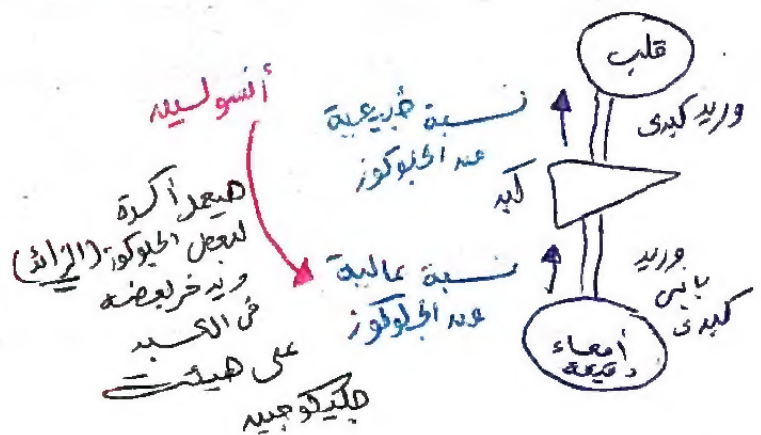 قلب
وريد كبدى
نسبة طبيعية
من الجلوكوز
أنسولين
كبد
هيعمل أكسدة
لبعض الجلوكوز (الزائد)
ويدخر بعضه
فى الكبد
على هيئة
جليكوجين
نسبة عالية
من الجلوكوز
وريد
بابى
كبدى
أمعاء
دقيقة